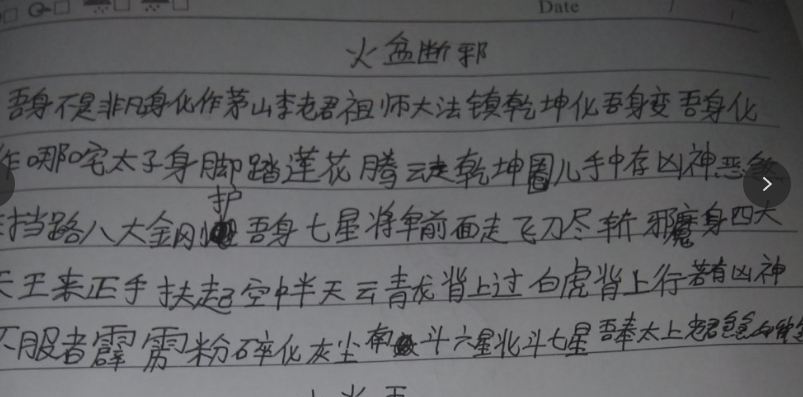 Date
火盆断邪
吾身不是非凡身化作茅山李老君祖师大法镇乾坤化吾身变吾身化
作哪吒太子身脚踏莲花腾云走乾坤圈儿手中存凶神恶煞
挡路八大金刚护吾身七星将军前面走飞刀尽斩邪魔身四大
天王来正手扶起空中半天云青龙背上过白虎背上行若有凶神
不服者霹雳粉碎化灰尘南斗六星北斗七星吾奉太上老君急急如律令